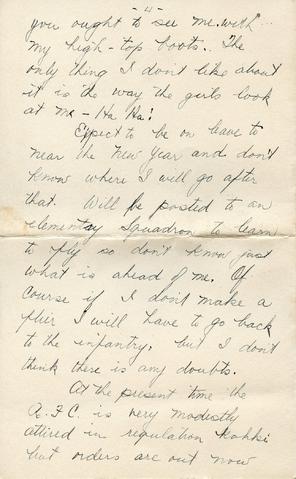 - 4 -
you ought to see me with
my high-top boots. The
only thing I don't like about
it is the way the girls look
at me - Ha Ha!
Expect to be on leave to
near the New Year and don't
know where I will go after
that. Will be posted to an
elementsy Squadron to learn
to fly so don't know just
what is ahead of me. Of
course if I don't make a
flier I will have to go back
to the infantry, but I don't
think there is any doubts.
At the present time the
R.F.C. is very modestly
attired in regulation Kahki
but orders are out now